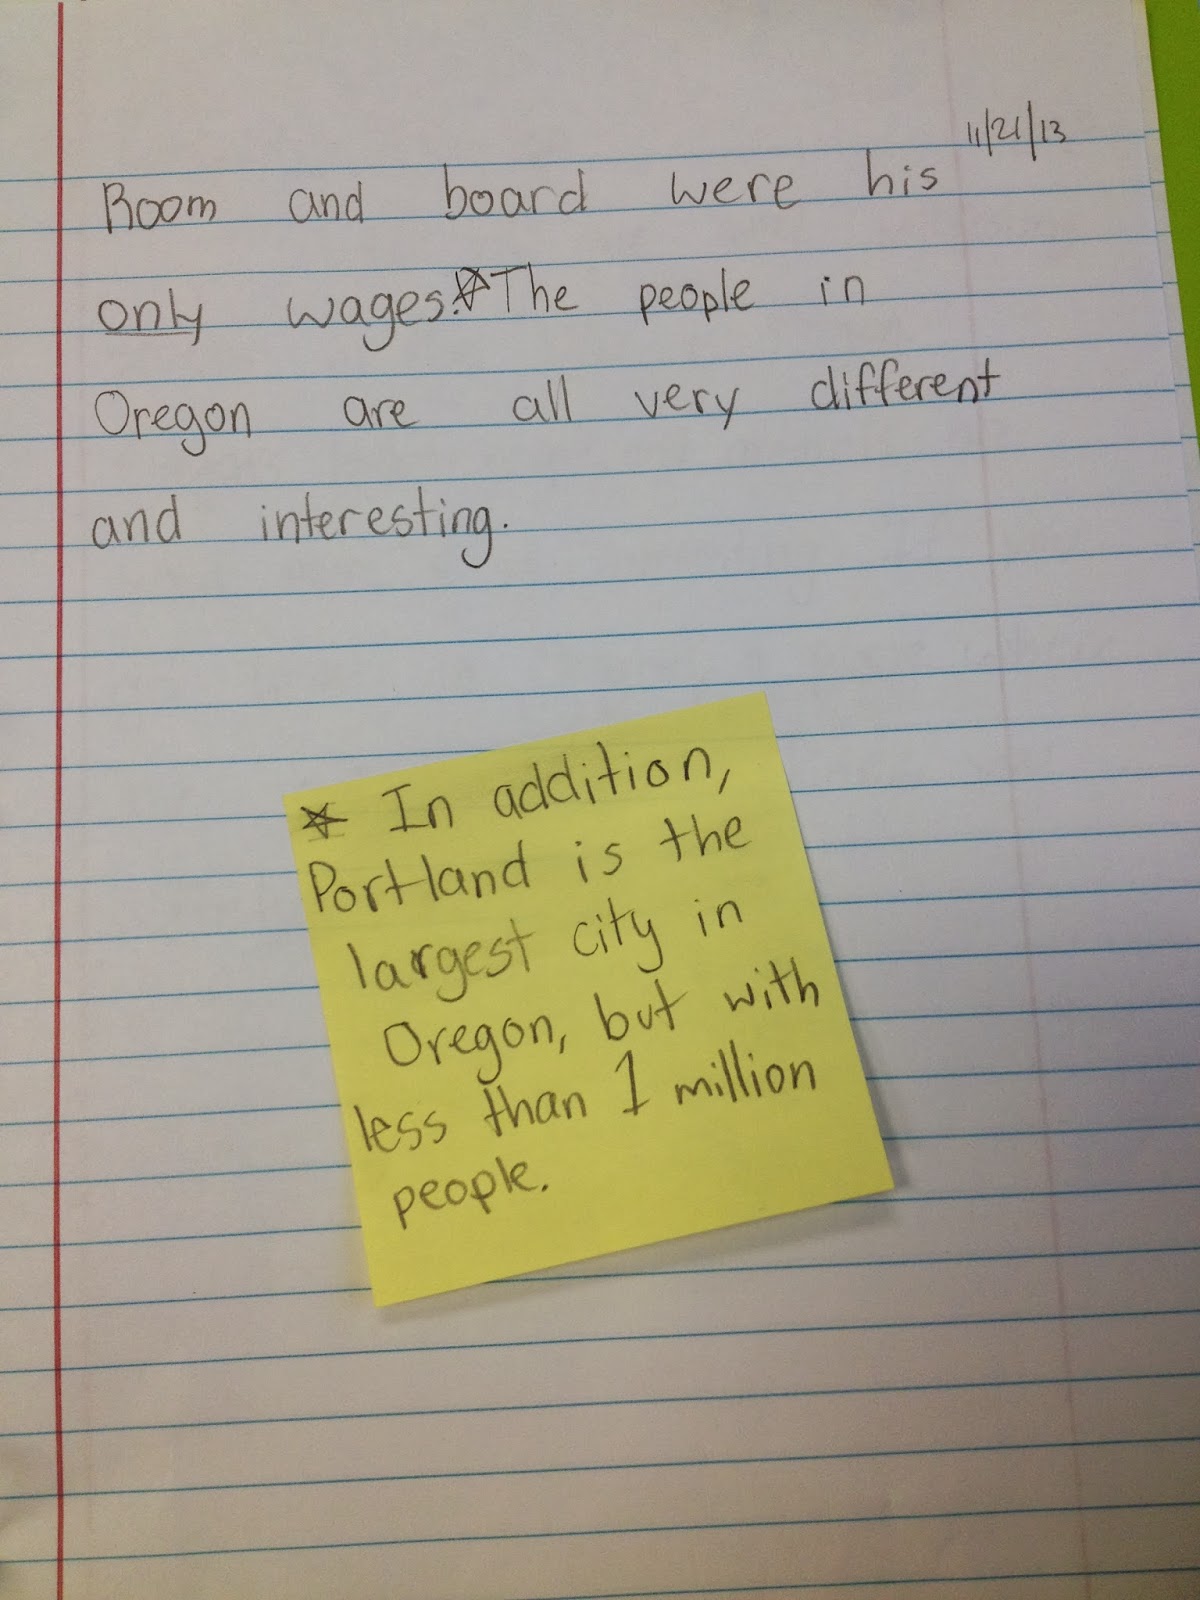 11/21/13
Room and board were his
only wages.☆The people in
Oregon are all very different
and interesting.
☆ In addition,
Portland is the
largest city in
Oregon, but with
less than 1 million
people.